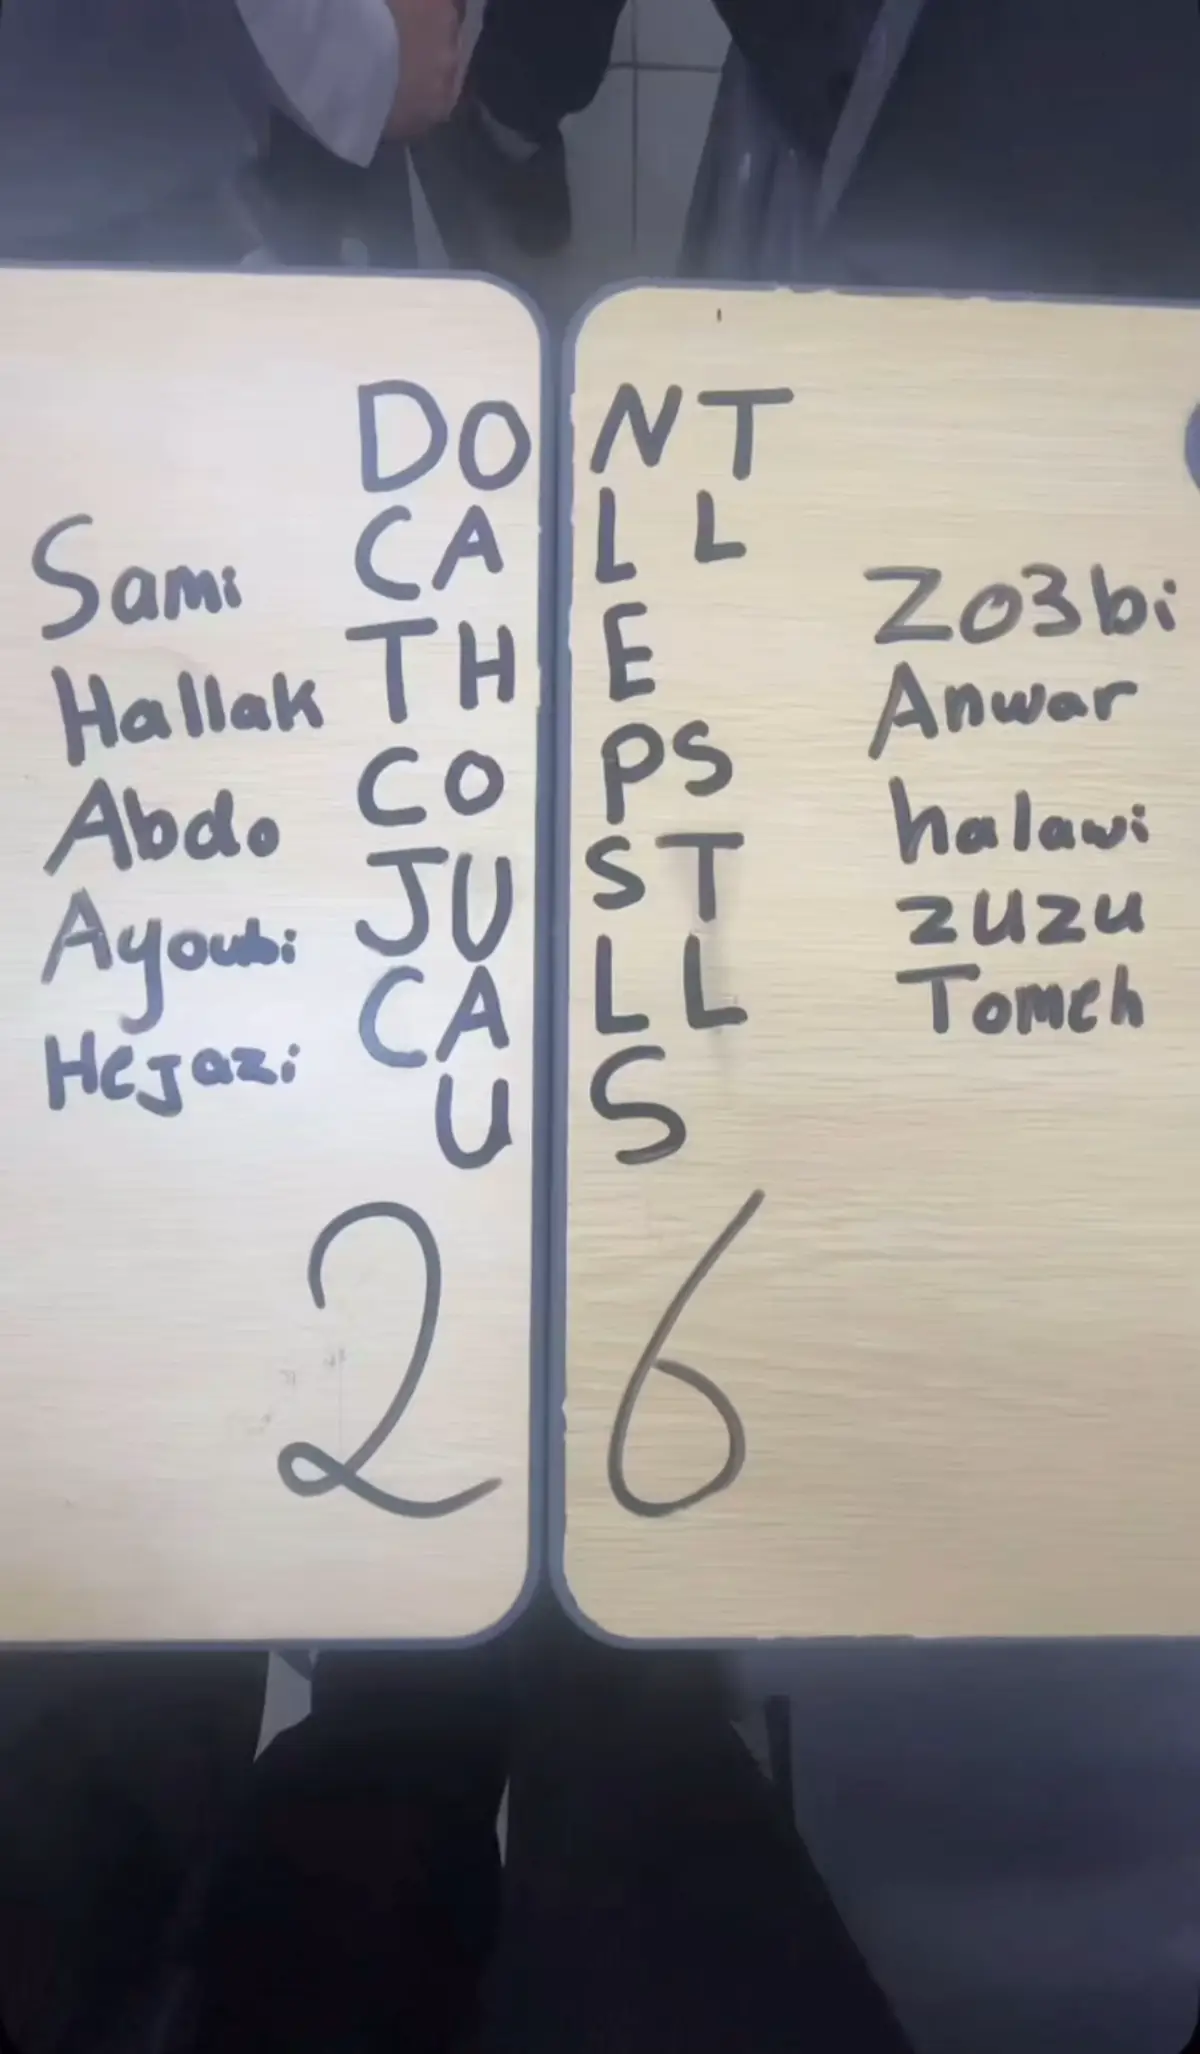 DONT
CALL
THE
COPS
JUST
CALL
US
26
Sami
Hallak
Abdo
Ayoubi
Hejazi
Zo3bi
Anwar
halawi
zuzu
Tomeh